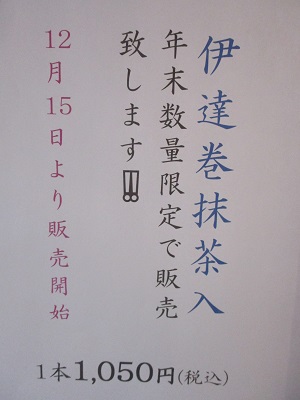 伊達巻抹茶入
年末数量限定で販売
致します!!
12月15日より販売開始
1本1,050円(税込)